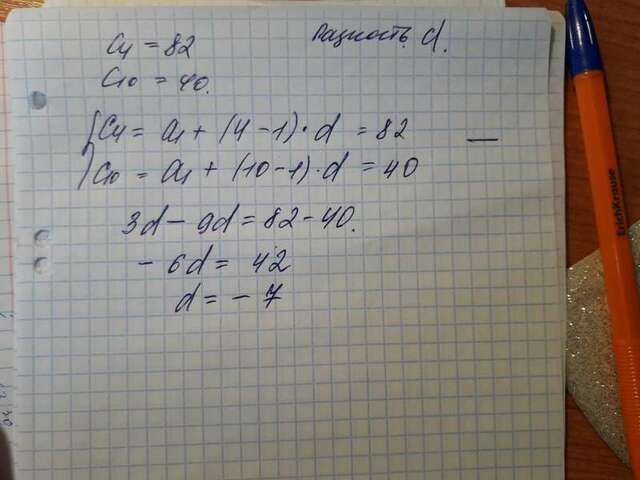 C4 = 82
Разность d.
C10 = 40.
C4 = a1 + (4 - 1) · d = 82 —
C10 = a1 + (10 - 1) · d = 40
3d - 9d = 82 - 40.
- 6d = 42
d = - 7
ErichKrause